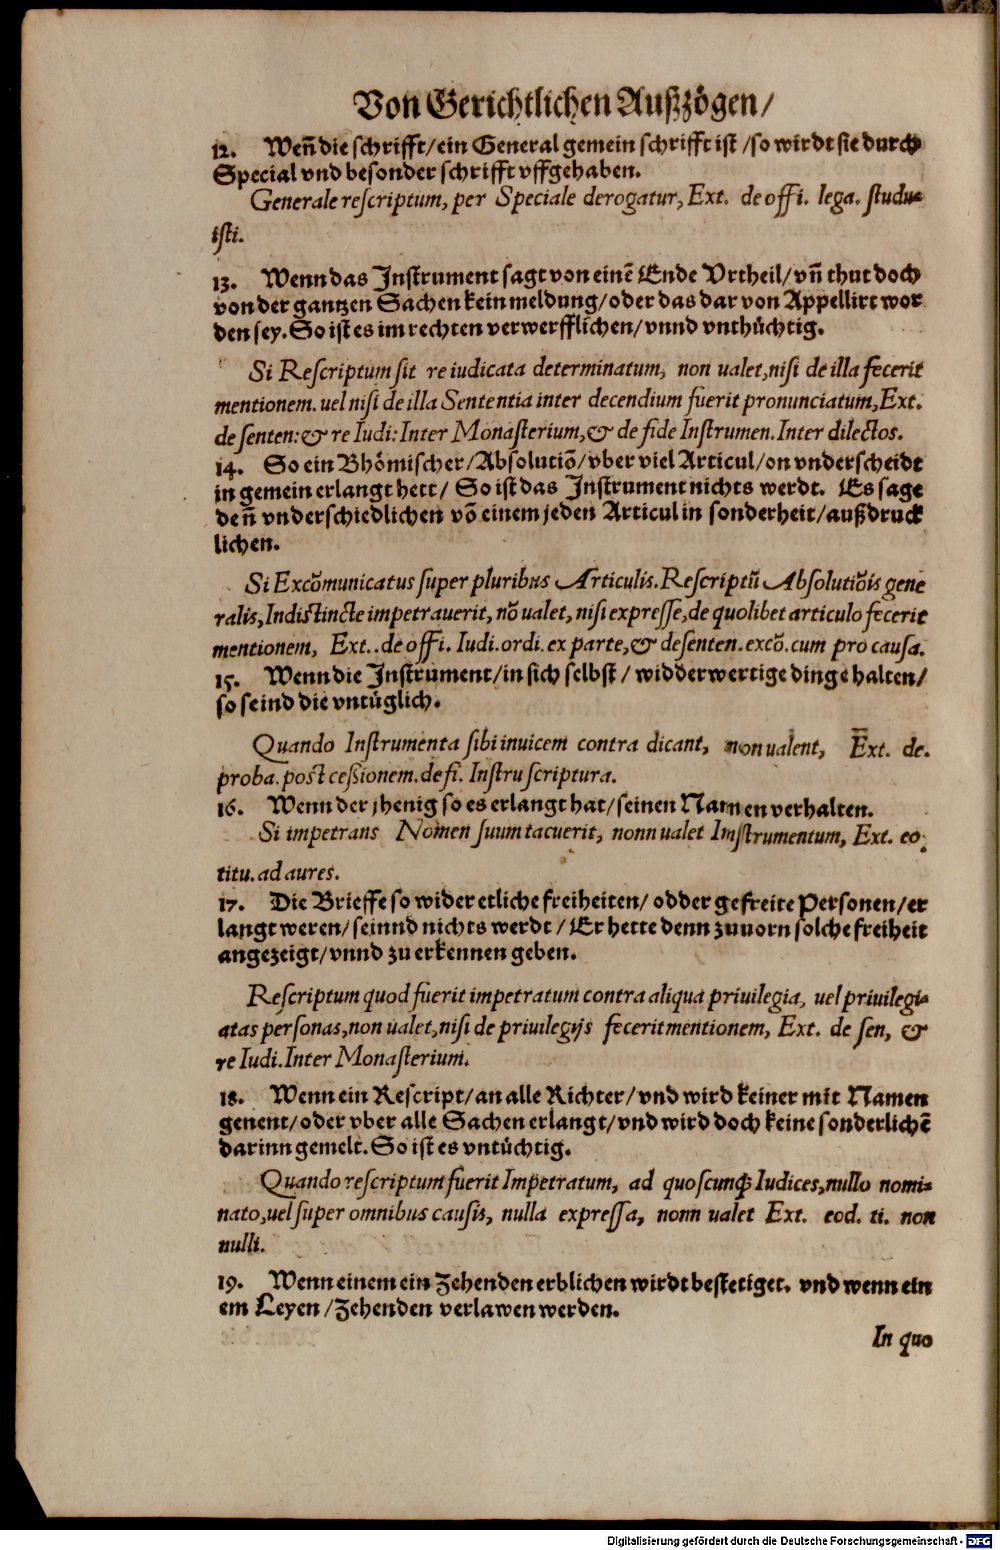 Von Gerichtlichen Außzögen/
12. Weñ die schrifft/ein General gemein schrifft ist /so wirdt sie durch
Special vnd besonder schrifft vffgehaben.
Generale reſcriptum, per Speciale derogatur, Ext. de offi. lega. ſtudu-
iſti.
13. Wenn das Instrument sagt von einē Ende Vrtheil/vñ thut doch
von der gantzen Sachen kein meldung/oder das dar von Appellirt wor
den sey. So ist es im rechten verwerfflichen/vnnd vnthüchtig.
Si Reſcriptum ſit re iudicata determinatum, non ualet, niſi de illa fecerit
mentionem. uel niſi de illa Sententia inter decendium fuerit pronunciatum, Ext.
de ſenten: & re Iudi: Inter Monaſterium, & de fide Inſtrumen. Inter dilectos.
14. So ein Bhömischer/Absolutiō/vber viel Articul/on vnderscheidt
in gemein erlangt hett/ So ist das Instrument nichts werdt. Es sage
deñ vnderschiedlichen vō einem jeden Articul in sonderheit/außdruck
lichen.
Si Excōmunicatus ſuper pluribus Articulis. Reſcriptū Abſolutiōis gene
ralis, Indiſtincte impetrauerit, nō ualet, niſi expreſſe, de quolibet articulo fecerit
mentionem, Ext.. de offi. Iudi. ordi. ex parte, & de ſenten. excō. cum pro cauſa.
15. Wenn die Instrument/in sich selbst / widderwertige dinge halten/
so seind die vntüglich.
Quando Inſtrumenta ſibi inuicem contra dicant, non ualent, Ext. de.
proba. poſt ceßionem. de fi. Inſtru ſcriptura.
16. Wenn der jhenig so es erlangt hat/seinen Namen verhalten.
Si impetrans Nomen ſuum tacuerit, nonn ualet Imſtrumentum, Ext. eo.
titu. ad aures.
17. Die Brieffe so wider etliche freiheiten/ odder gefreite Personen/er
langt weren/seinnd nichts werdt / Er hette denn zuuorn solche freiheit
angezeigt/vnnd zu erkennen geben.
Reſcriptum quod fuerit impetratum contra aliqua priuilegia, uel priuilegi-
atas perſonas, non ualet, niſi de priuilegijs fecerit mentionem, Ext. de ſen, &
re Iudi. Inter Monaſterium.
18. Wenn ein Rescript/an alle Richter/vnd wird keiner mit Namen
genent/oder vber alle Sachen erlangt/vnd wird doch keine sonderlichē
darinn gemelt. So ist es vntüchtig.
Quando reſcriptum fuerit Impetratum, ad quoſcunq́; Iudices, nullo nomi-
nato, uel ſuper omnibus cauſis, nulla expreſſa, nonn ualet Ext. eod. ti. non
nulli.
19. Wenn einem ein Zehenden erblichen wirdt bestetiget. vnd wenn ein
em Leyen /Zehenden verlawen werden.
In quo
Digitalisierung gefördert durch die Deutsche Forschungsgemeinschaft - DFG